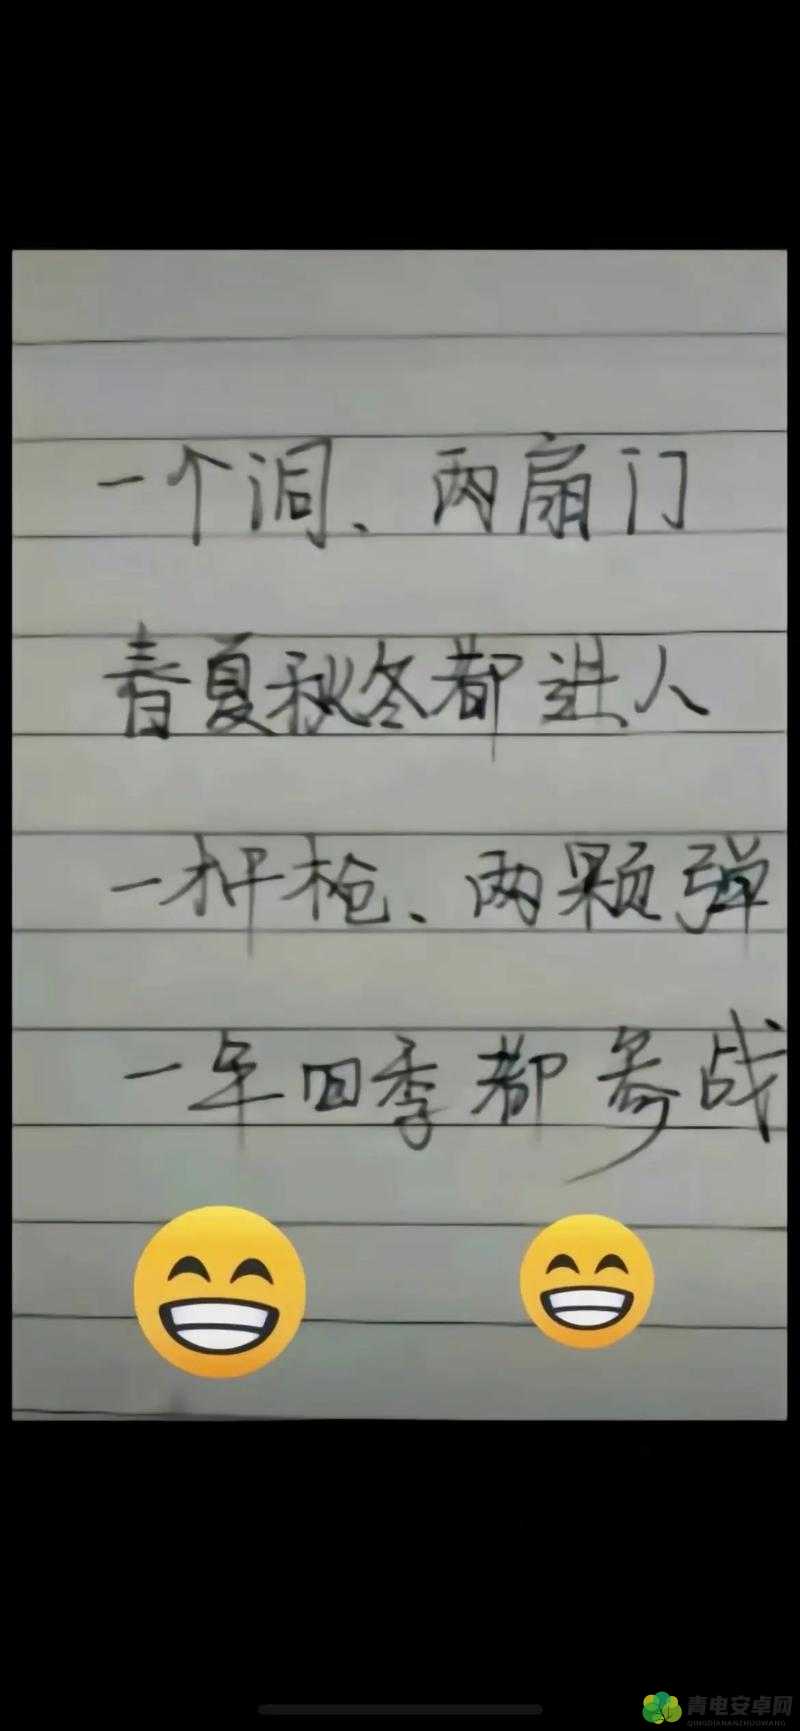 一个洞、两扇门
春夏秋冬都进人
一杆枪、两颗弹
一年四季都参战
青电安卓网
QINGDIANANZHUOWANG